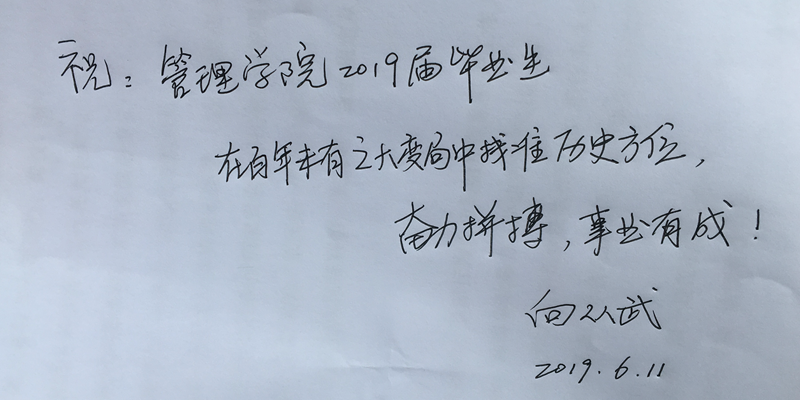 祝：管理学院2019届毕业生
在百年未有之大变局中找准历史方位，
奋力拼搏，事业有成！
向从武
2019.6.11